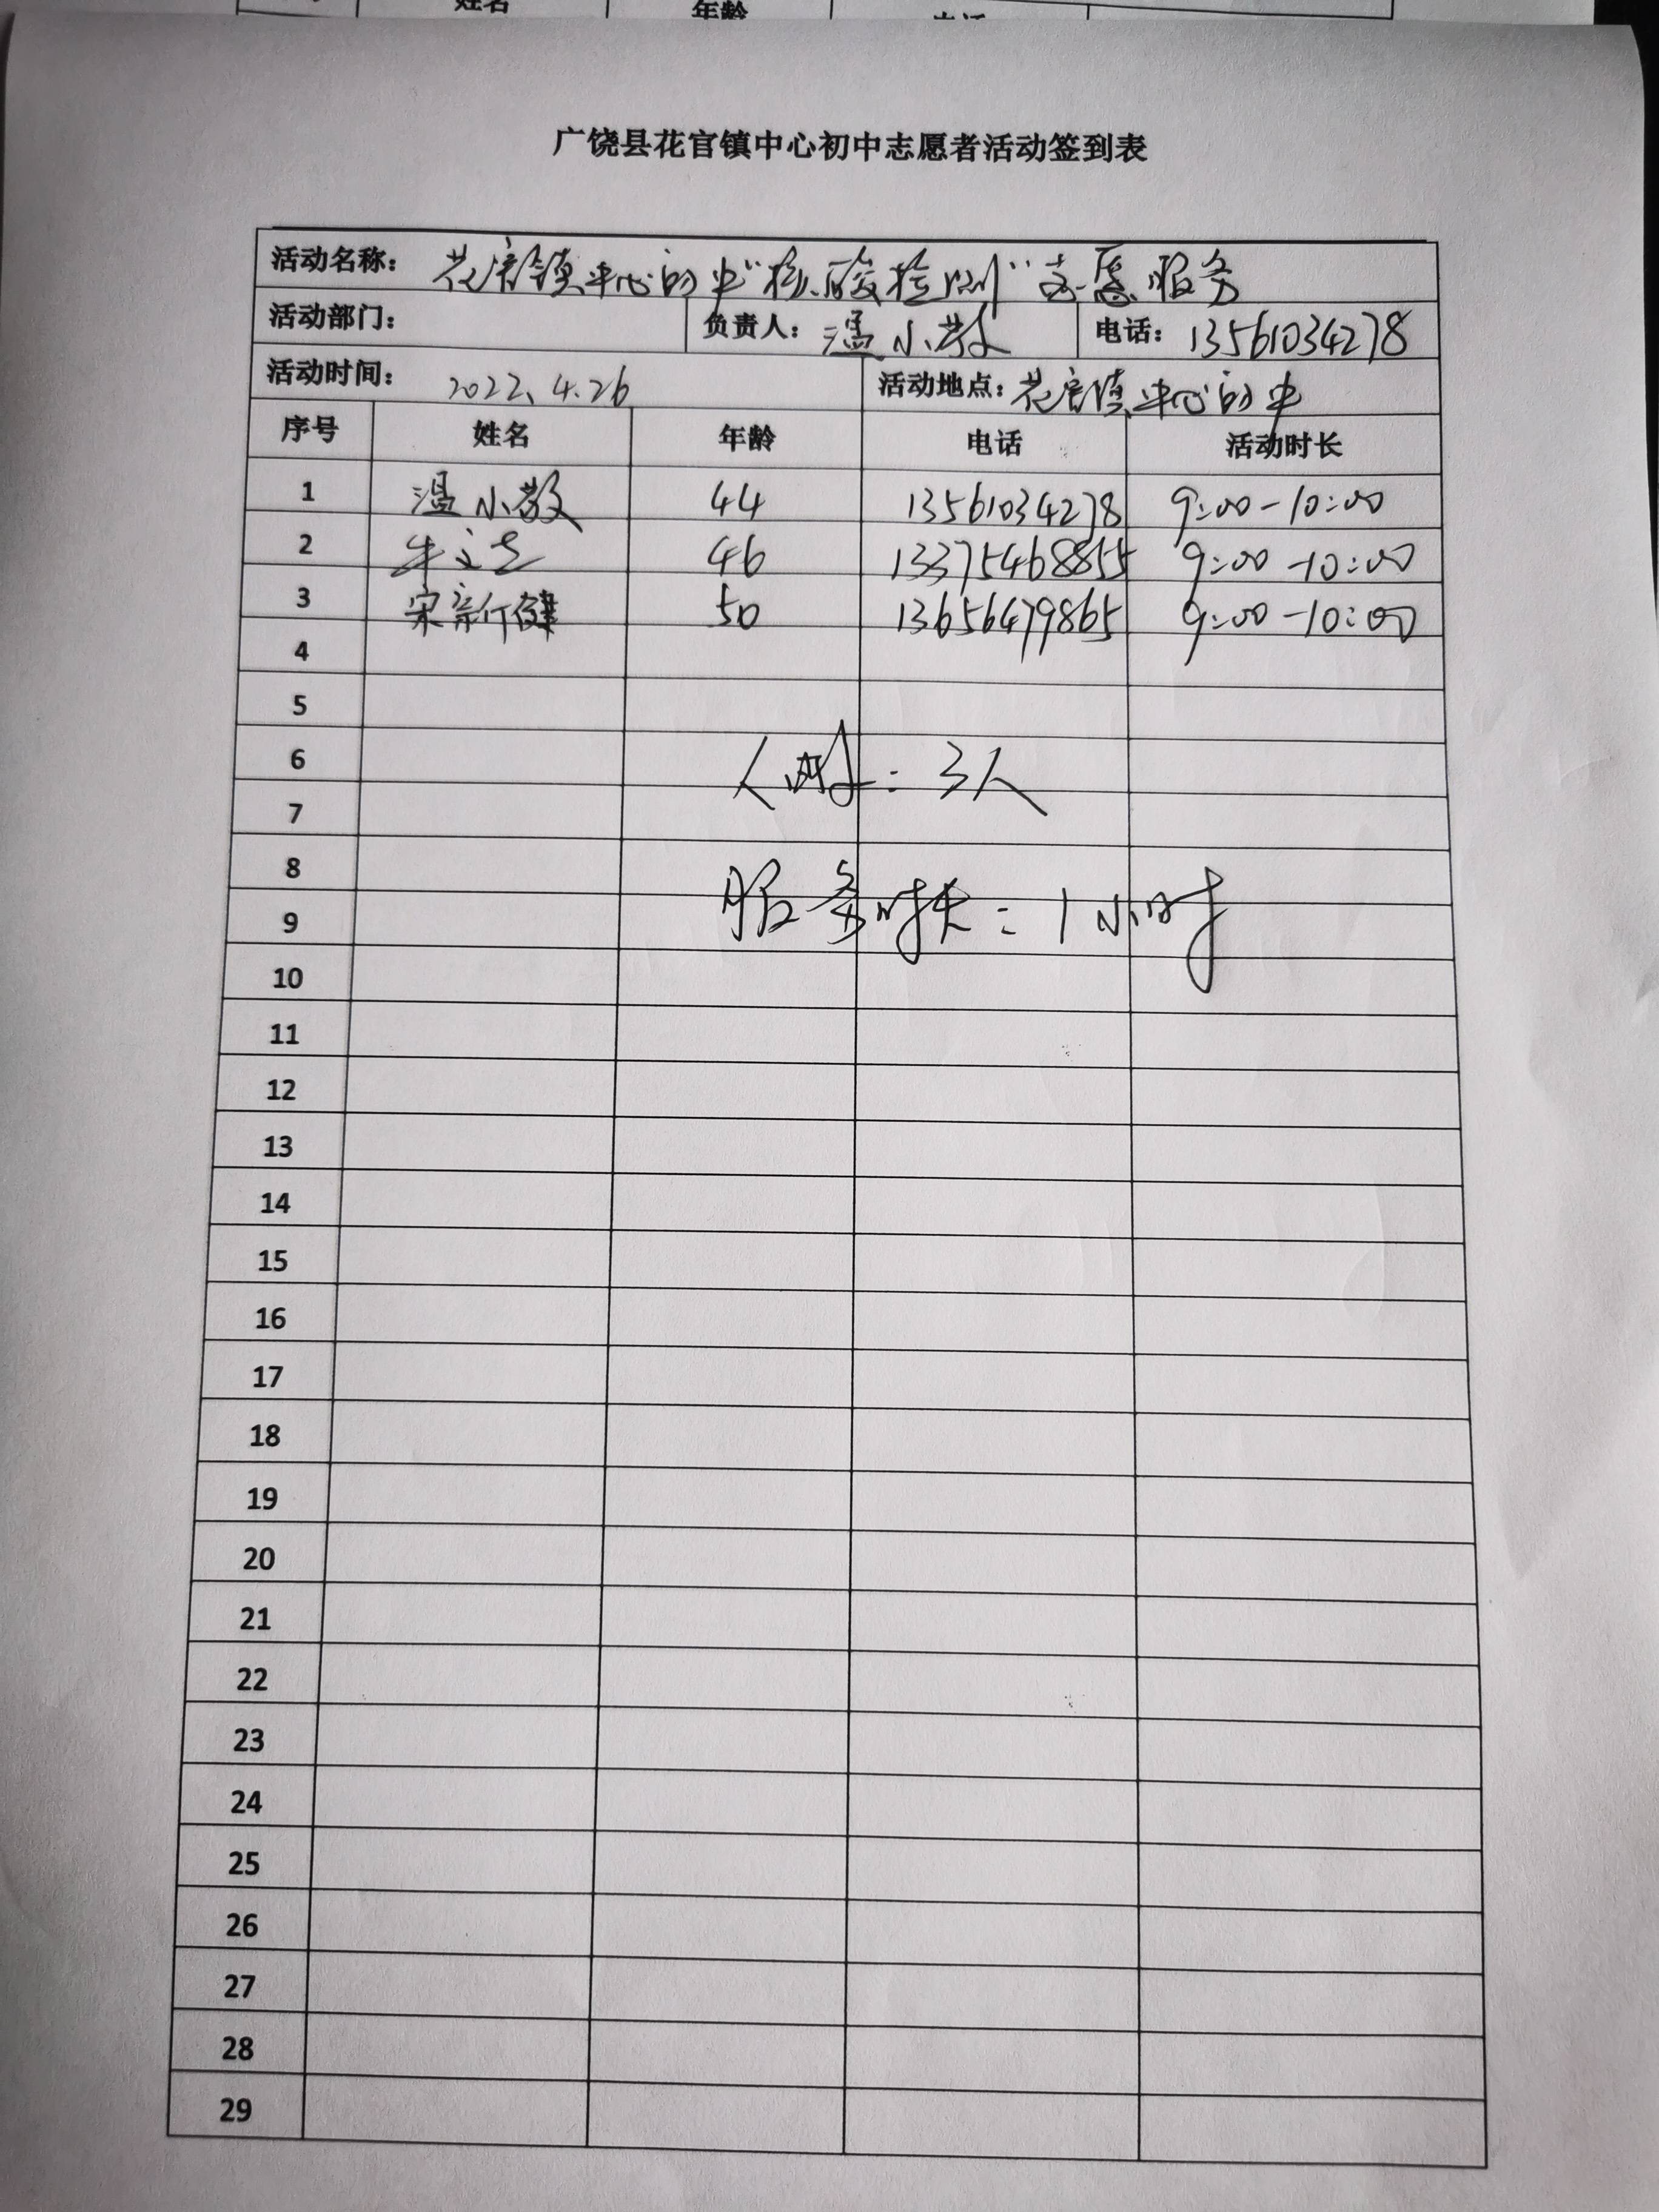 姓名 年龄 电话
广饶县花官镇中心初中志愿者活动签到表
活动名称： 花官镇中心初中“核酸检测”志愿服务
活动部门： 负责人： 温小敬 电话： 13561034278
活动时间： 2022、4.26 活动地点： 花官镇中心初中
序号 姓名 年龄 电话 活动时长
1 温小敬 44 13561034278 9:00-10:00
2 46 13375468855 9:00-10:00
3 宋新健 50 13656479865 9:00-10:00
4
5
6
人 : 3人
7
8
服务时长: 1小时
9
10
11
12
13
14
15
16
17
18
19
20
21
22
23
24
25
26
27
28
29